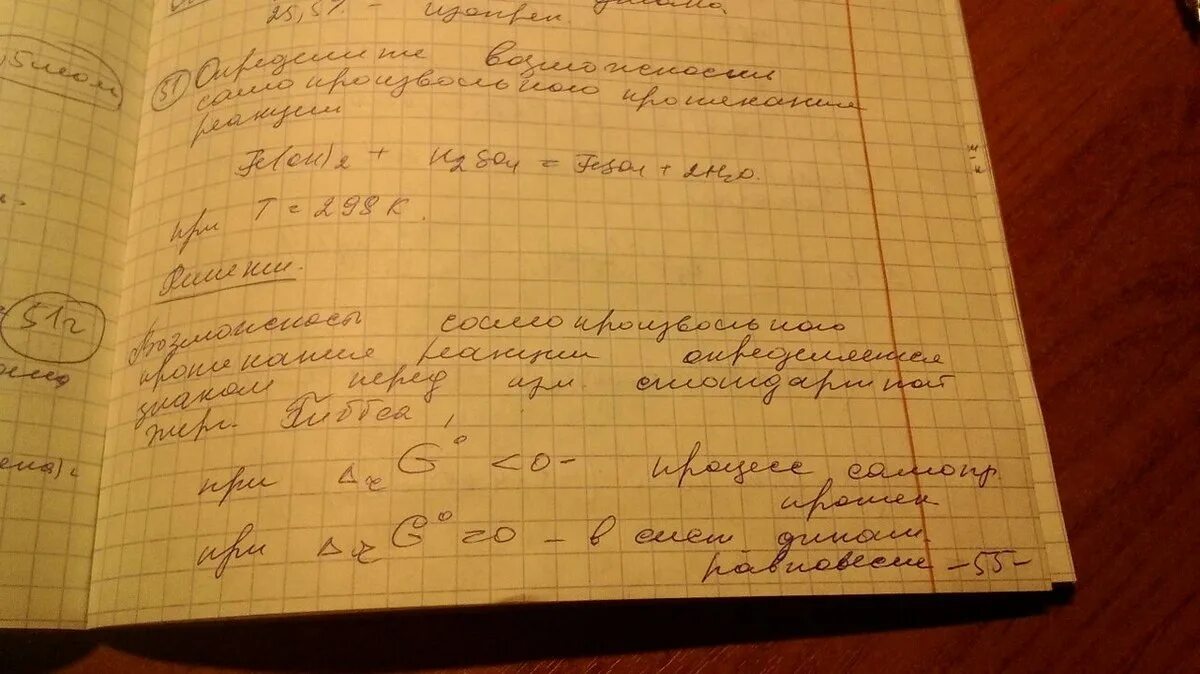 25,5% - изопрен
51 Определите возможности
самопроизвольного протекания
реакции
Fe(OH)2 + H2SO4 = FeSO4 + 2H2O.
при T = 298 K.
Решение.
Возможность самопроизвольного
протекание реакции определяется
знаком перед изм. стандартной
энерг. Гиббса,
при ΔrG° <0 - процесс самопр.
протек
при ΔrG° =0 - в сист динам.
равновесие -55-
5моль
51г
ена).